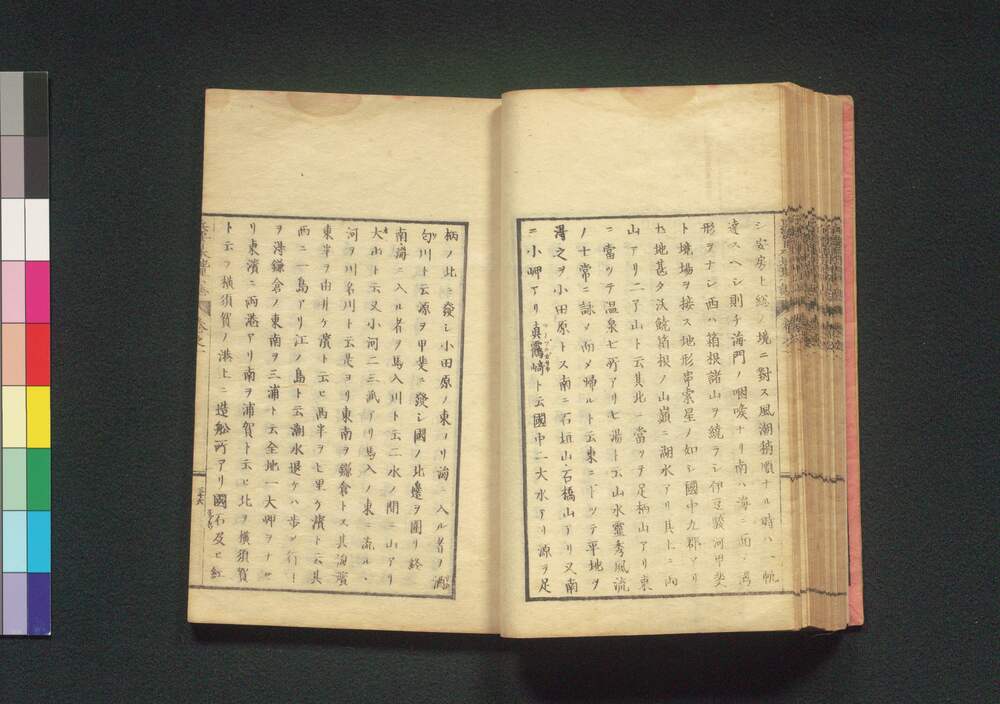 シ安房上総ノ境ニ對ス風潮稍順ナル時ハ一帆
達スヘシ則チ海門ノ咽喉ナリ南ハ海ニ面シ灣
形ヲナシ西ハ箱根諸山ヲ繞ラシ伊豆駿河甲斐
ト境場ヲ接ス地形串索星ノ如シ國中九郡アリ
地甚タ沃饒箱根ノ山嶺ニ湖水アリ其上ニ
山アリ二子山ト云其北ニ當ツテ足柄山アリ東
ニ當ツテ温泉七所アリ七湯ト云山水靈秀風流
ノ士常ニ詠メ而メ帰ルト云東ニ下ツテ平地ヲ
得之ヲ小田原トス南ニ石垣山石橋山アリ又南
ニ小岬アリ真靏崎ト云國中二大水アリ源ヲ足
柄ノ北ニ發シ小田原ノ東ノ海ニ入ル者ノ酒
匂川ト云源ヲ甲斐ニ發シ國ノ北邊ヲ圍リ終
南海ニ入ル者ヲ馬入川ト云二水ノ間ニ山アリ
大山ト云又小河二三派アリ馬入ノ東ニ流ル
河ヲ川名川ト云是ヨリ東南ヲ鎌倉トス其海濱
東半ヲ由井ケ濱ト云ヒ西半ヲ七里ケ濱ト云其
西ニ一島アリ江ノ島ト云潮水退ケハ歩シ行
ヲ得鎌倉ノ東南ヲ三浦ト云全地一大岬ヲナセ
リ東濱ニ両港アリ南ヲ浦賀ト云ヒ北ヲ横須賀
ト云フ横須賀ノ港上ニ造船所アリ國石及ヒ紅